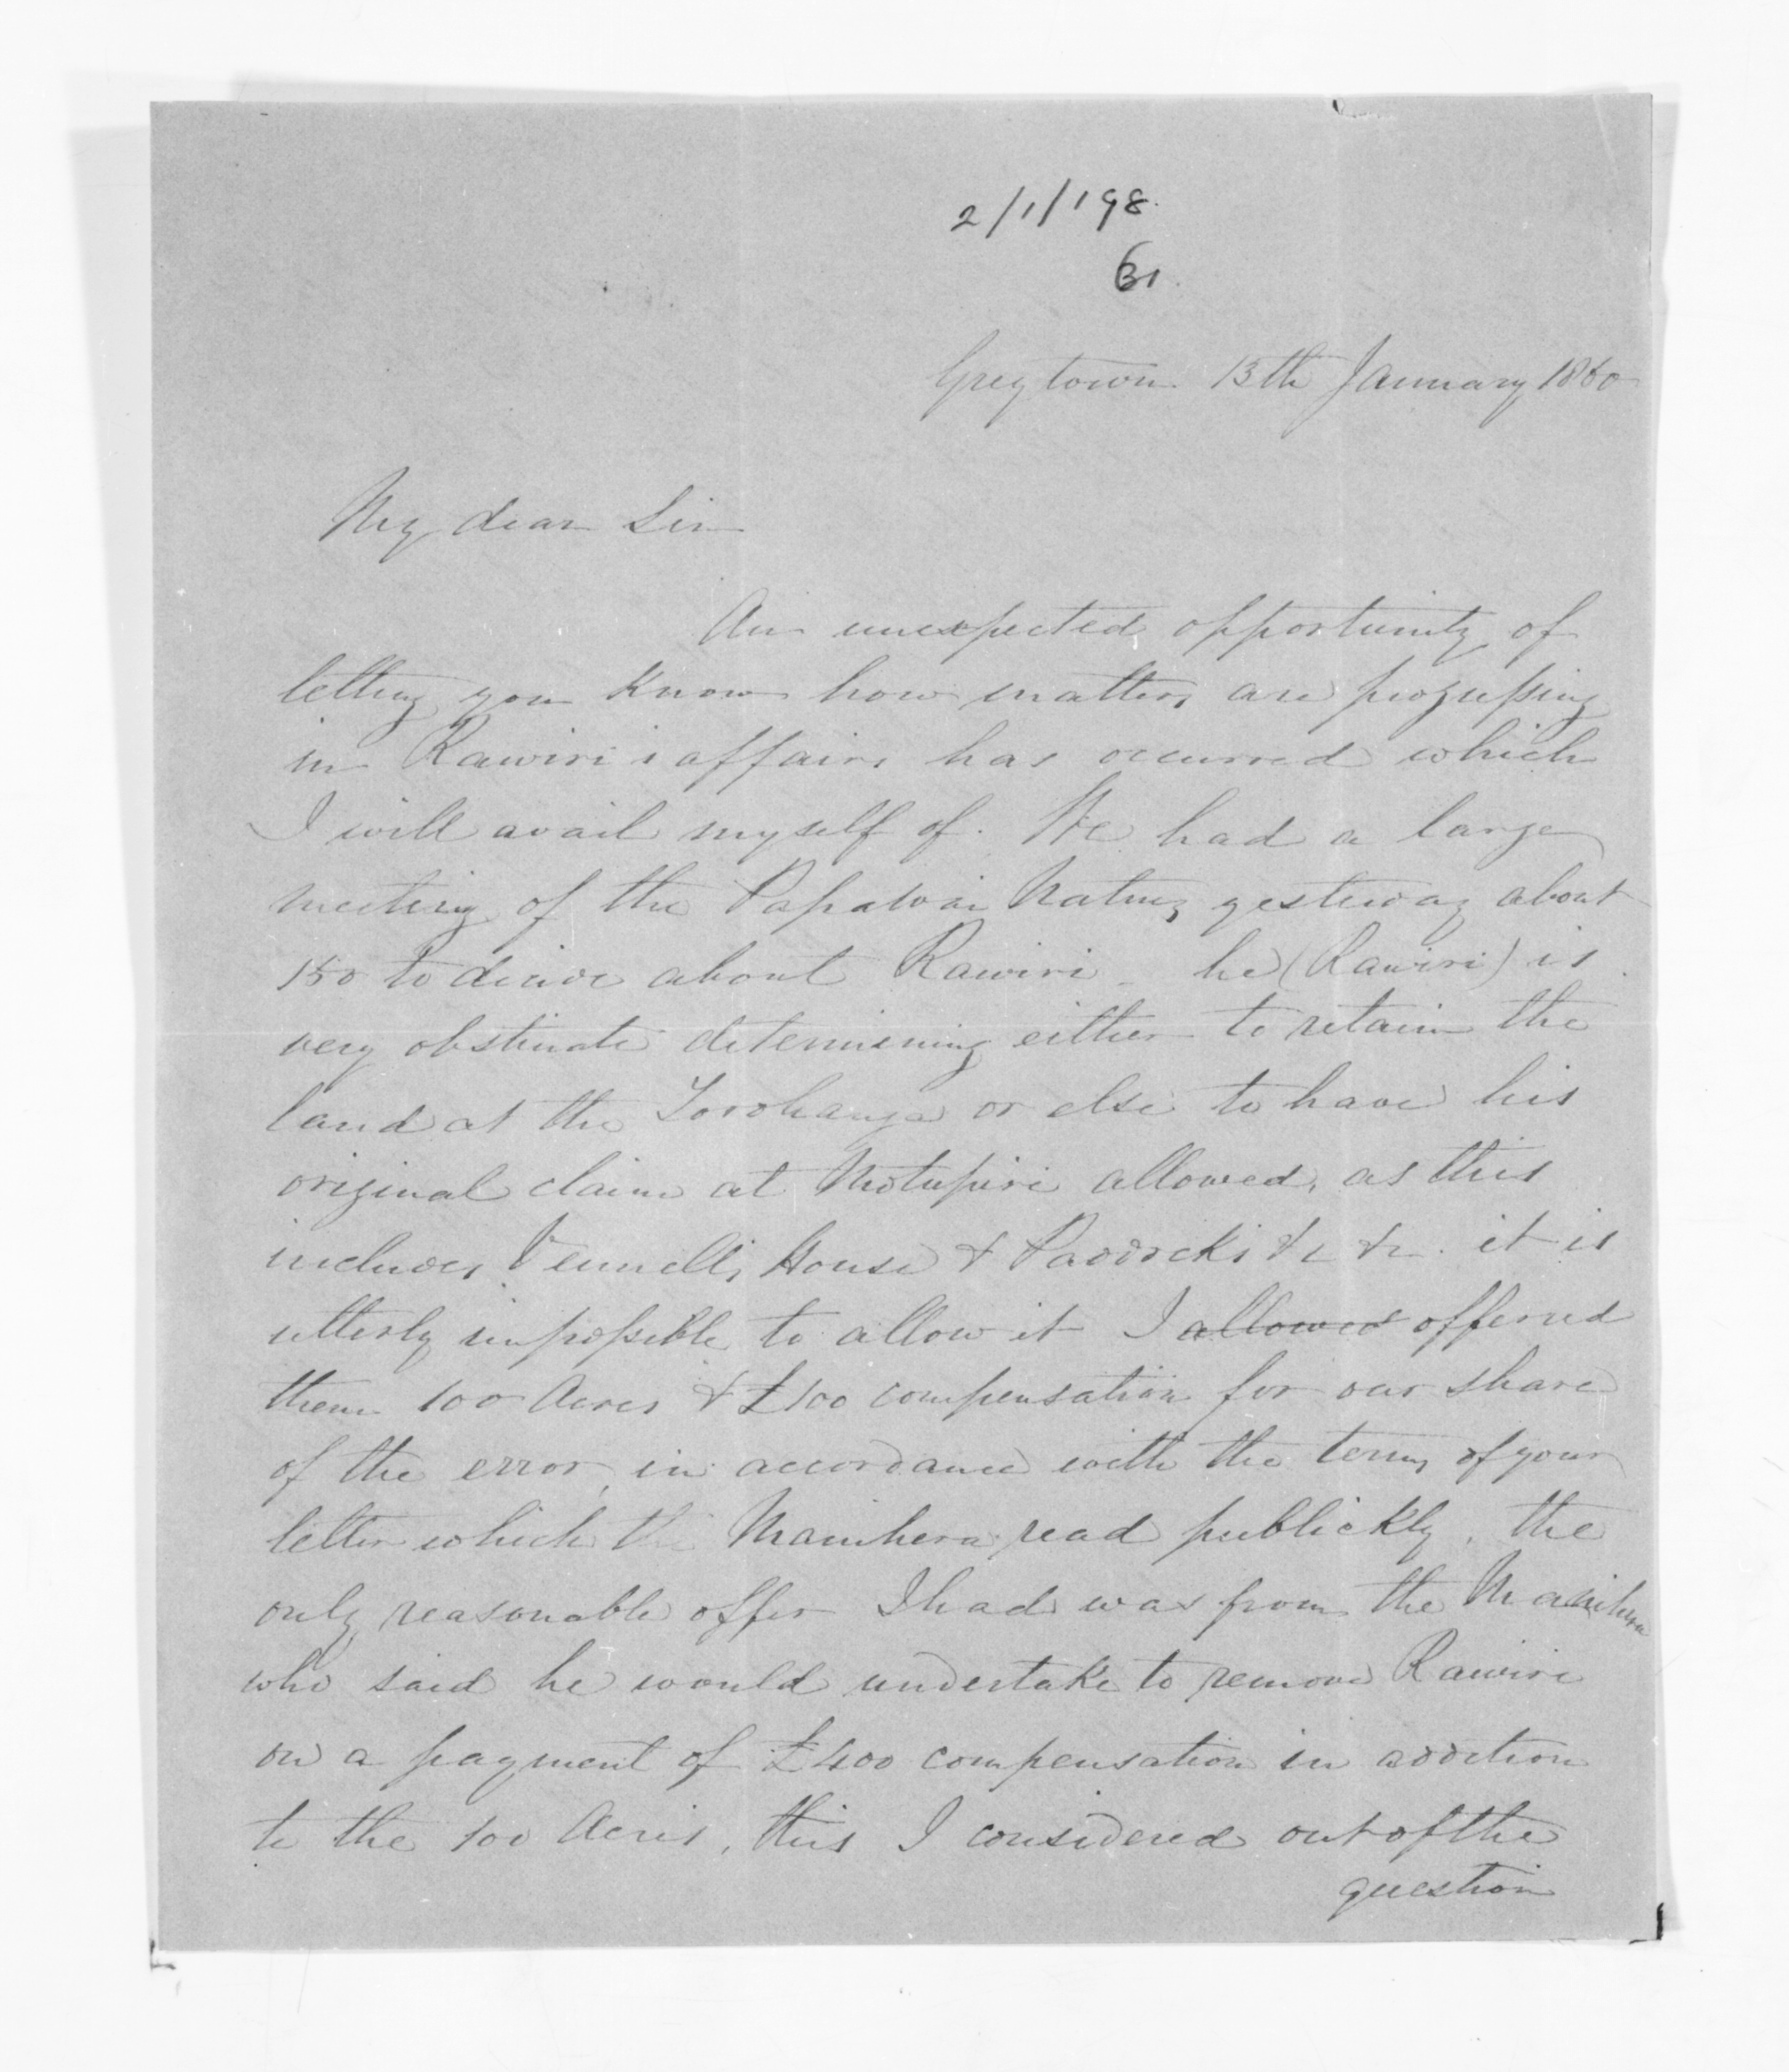 2/1/198.
61.
Greytown. 13th January 1860
My dear Sir
An unexpected opportunity of
letting you know how matters are progressing
in Rawiri's affairs has occurred which
I will avail myself of. We had a large
meeting of the Papawai Natives yesterday about
150 to decide about Rawiri he (Rawiri) is
very obstinate determining either to retain the
land at the Torohanga or else to have his
original claim at Motupiri allowed, as this
includes Vennell's House & Paddocks &c &c. it is
utterly impossible to allow it I allowed offered
them 100 Acres & £100 compensation for our share
of the error, in accordance with the terms of your
letter which the Manihera read publickly, the
only reasonable offer I had was from the Manihera
who said he would undertake to remove Rawiri
on a payment of £400 compensation in addition
to the 100 Acres, this I considered out of the
question